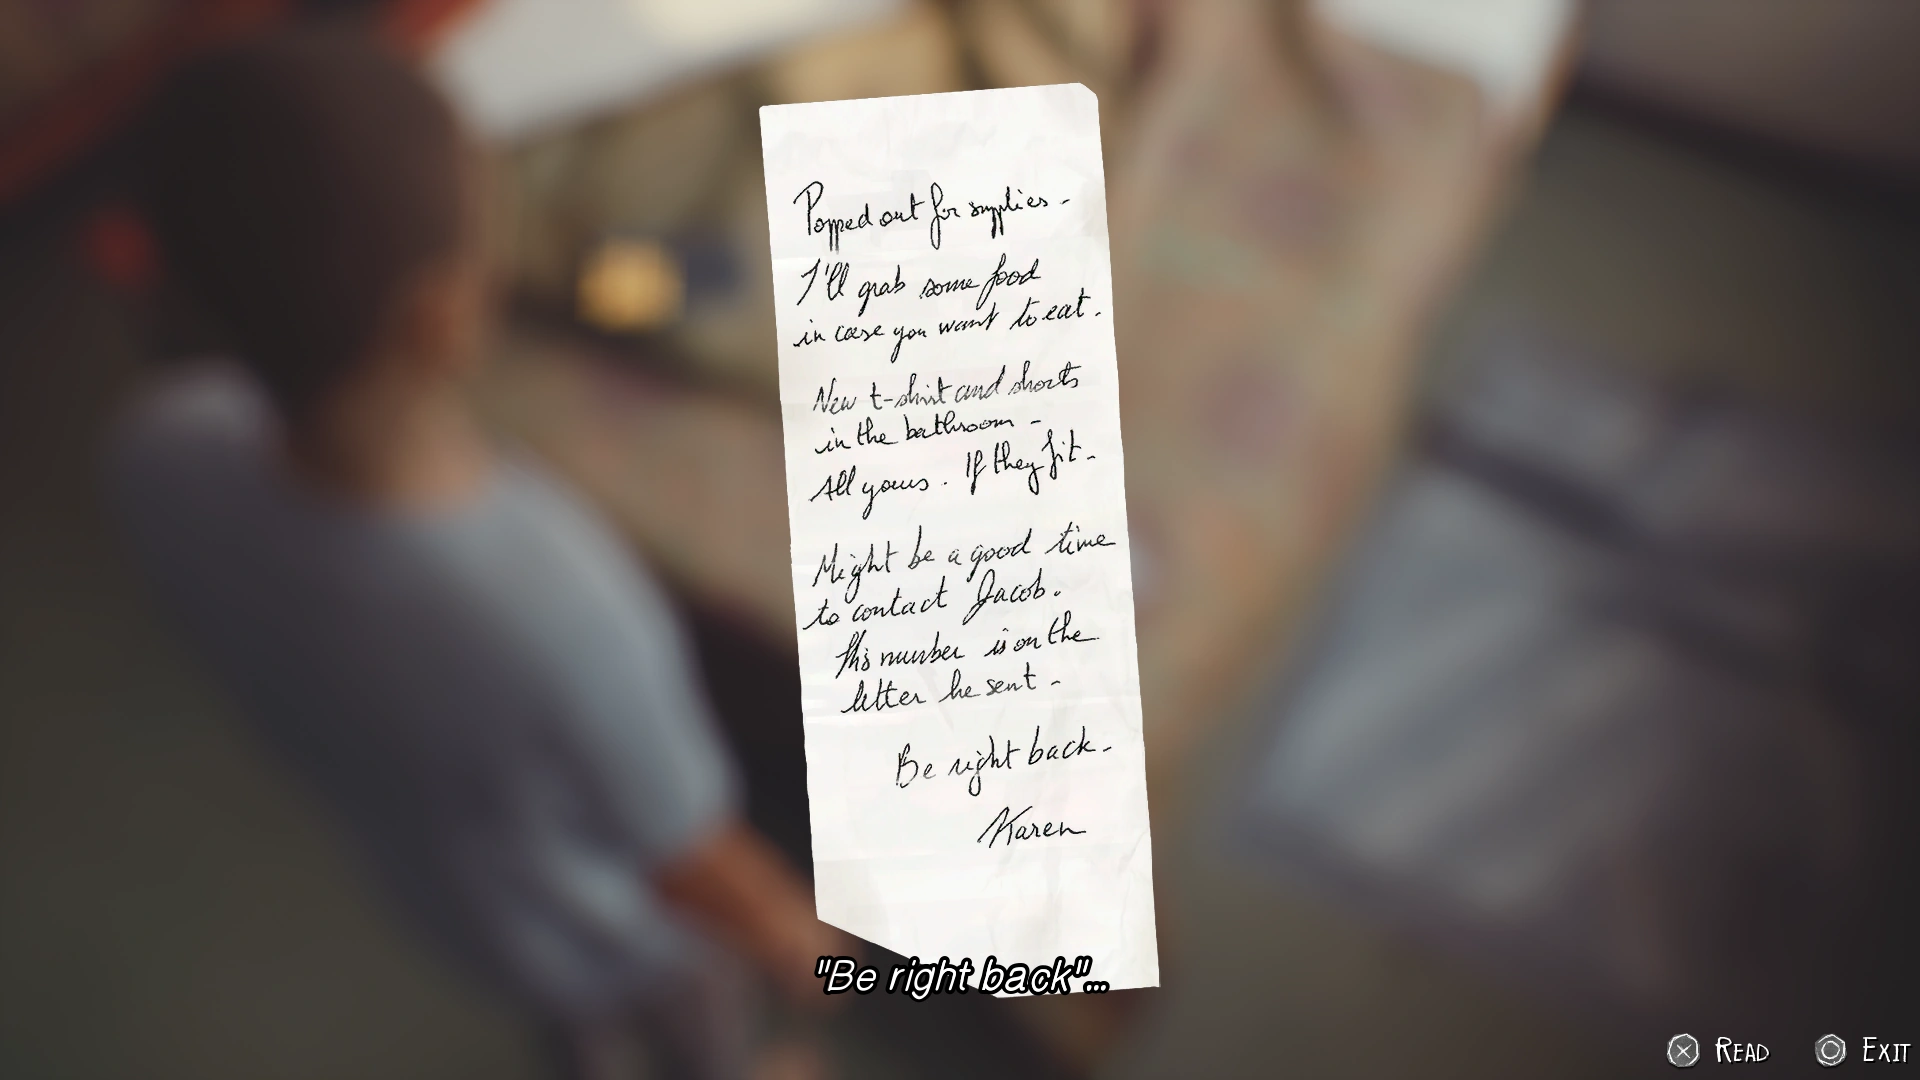 Popped out for supplies -
I'll grab some food
in case you want to eat.
New t-shirt and shorts
in the bathroom -
All yours. If they fit -
Might be a good time
to contact Jacob.
His number is on the
letter he sent -
Be right back -
Karen
"Be right back"...
READ
EXIT